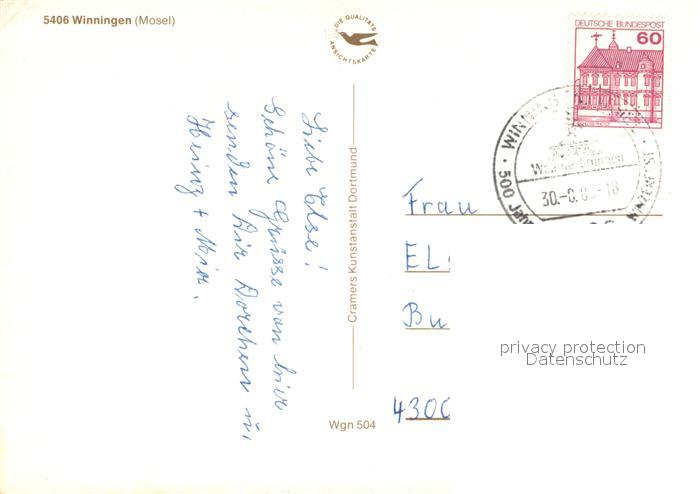 5406 Winningen (Mosel)
DIE QUALITÄTS
ANSICHTSKARTE
DEUTSCHE BUNDESPOST
60
WINNING
500 Jahre
30.-6.8
-18
Liebe Else!
Schöne Grüsse von hier
senden Dir Dorchen u.
Heinz + Mia.
Cramers Kunstanstalt Dortmund
Wgn 504
Frau
EL
Bu
4300
privacy protection
Datenschutz